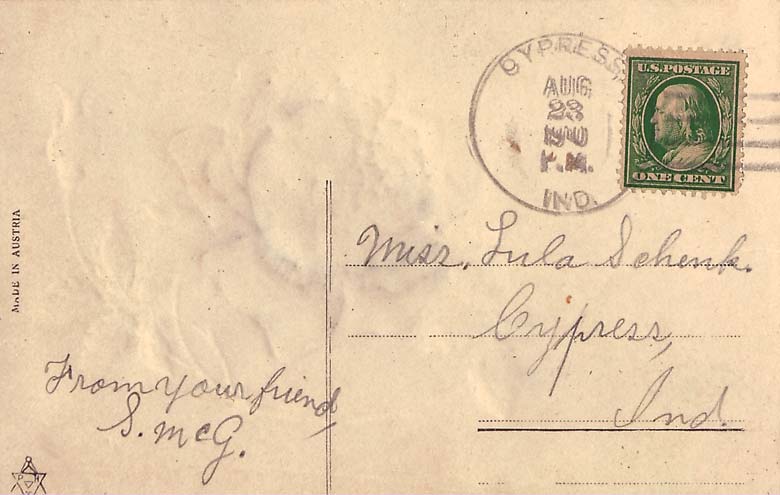 CYPRESS,
AUG
23
1910
P.M.
IND.
U.S. POSTAGE
ONE CENT
MADE IN AUSTRIA
Miss. Lula Schenk.
Cypress,
Ind.
From your friend,
S. McG.